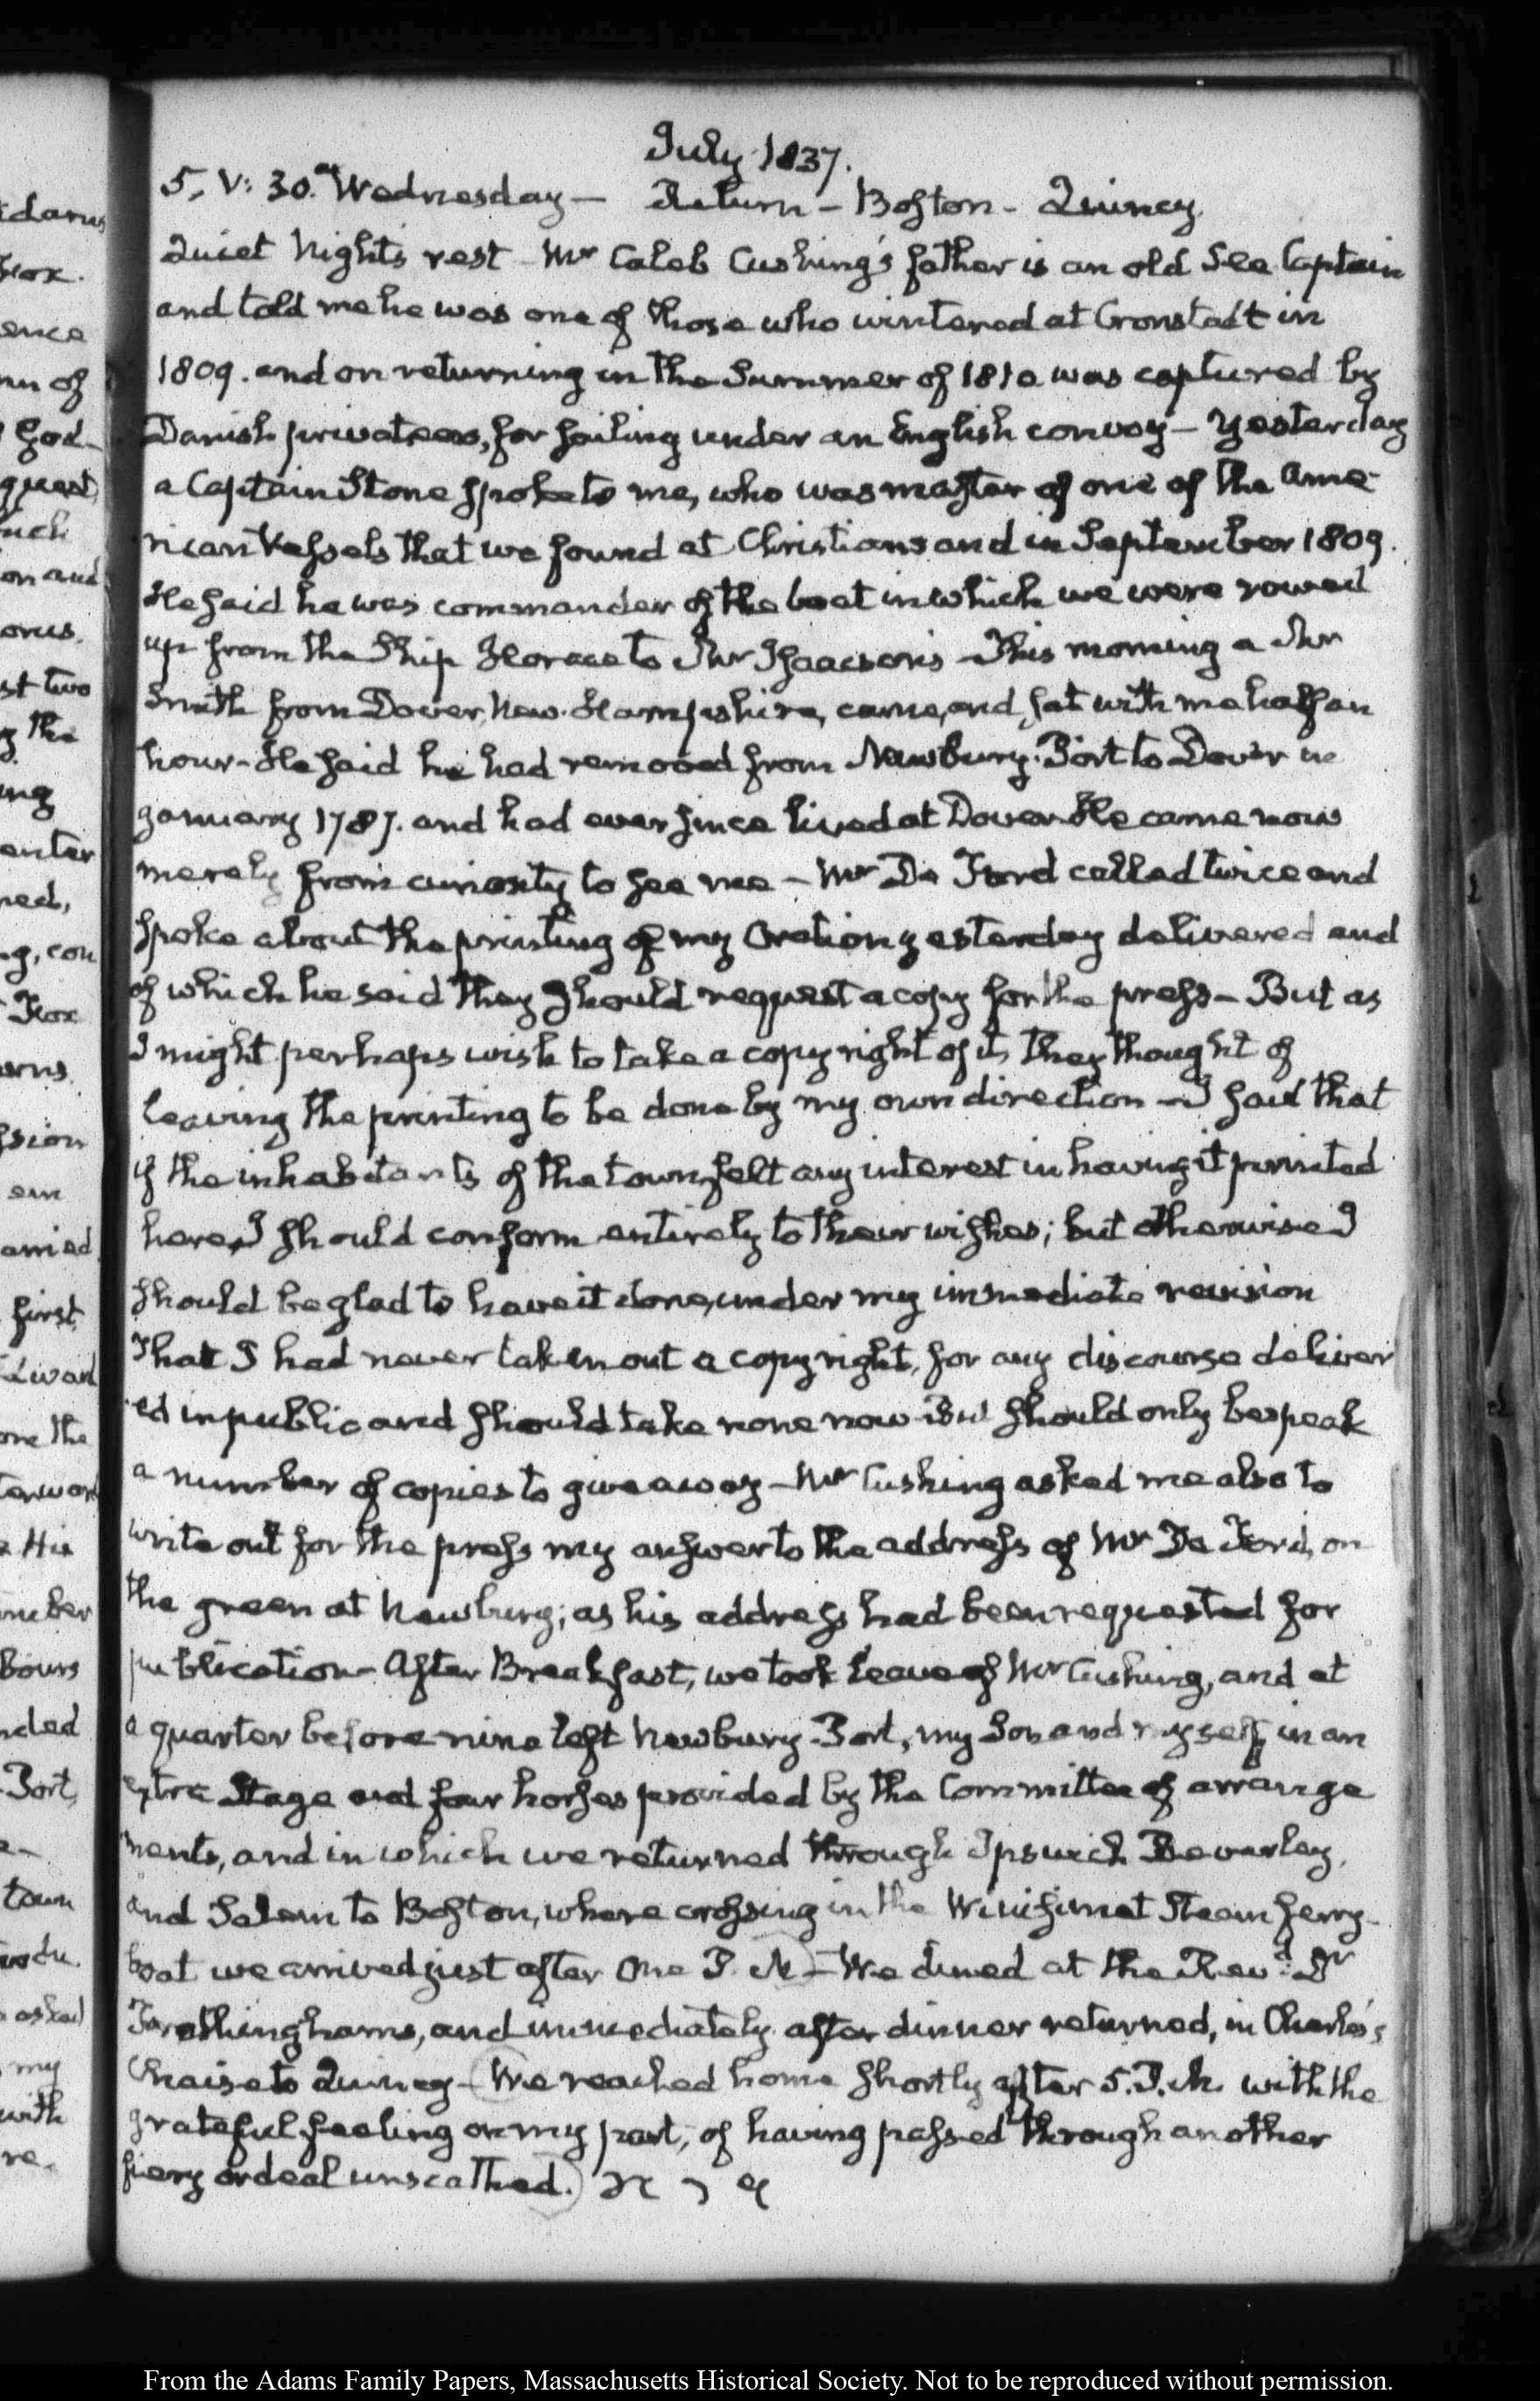 July 1837.
5. V: 30. Wednesday — Return — Boston — Quincy.
Quiet Night's rest — Mr Caleb Cushing's father is an old Sea Captain
and told me he was one of those who wintered at Cronstadt in
1809. and on returning in the Summer of 1810 was captured by
Danish privateers, for sailing under an English convoy — Yesterday
a Captain Stone spoke to me, who was master of one of the Ame-
rican Vessels that we found at Christiansand in September 1809.
He said he was commander of the boat in which we were rowed
up from the Ship Horace to Mr Isaacson's — This morning a Mr
Smith from Dover, New-Hampshire, came, and sat with me half an
hour — He said he had removed from Newbury-Port to Dover in
January 1787. and had ever since lived at Dover He came now
merely from curiosity to see me — Mr De Ford called twice and
spoke about the printing of my Oration yesterday delivered and
of which he said they should request a copy for the press — But as
I might perhaps wish to take a copy right of it, they thought of
leaving the printing to be done by my own direction — I said that
if the inhabitants of the town felt any interest in having it printed
here, I should conform entirely to their wishes; but otherwise I
should be glad to have it done, under my immediate revision
That I had never taken out a copy right, for any discourse deliver
ed in public and should take none now But should only bespeak
a number of copies to give away — Mr Cushing asked me also to
write out for the press my answer to the address of Mr De Ford, on
the green at Newbury; as his address had been requested for
publication — After Breakfast, we took leave of Mr Cushing, and at
a quarter before nine left Newbury-Port, my Son and myself, in an
extra Stage and four horses provided by the Committee of arrange
ments, and in which we returned through Ipswich Beverley,
and Salem to Boston, where crossing in the Winisimet Steam ferry-
boat we arrived just after One P.M. — We dined at the Revd. Dr
Frothingham's, and immediately after dinner returned, in Charles's
Chaise to Quincy — We reached home shortly after 5. P.M. with the
grateful feeling on my part, of having passed through another
fiery ordeal unscathed.